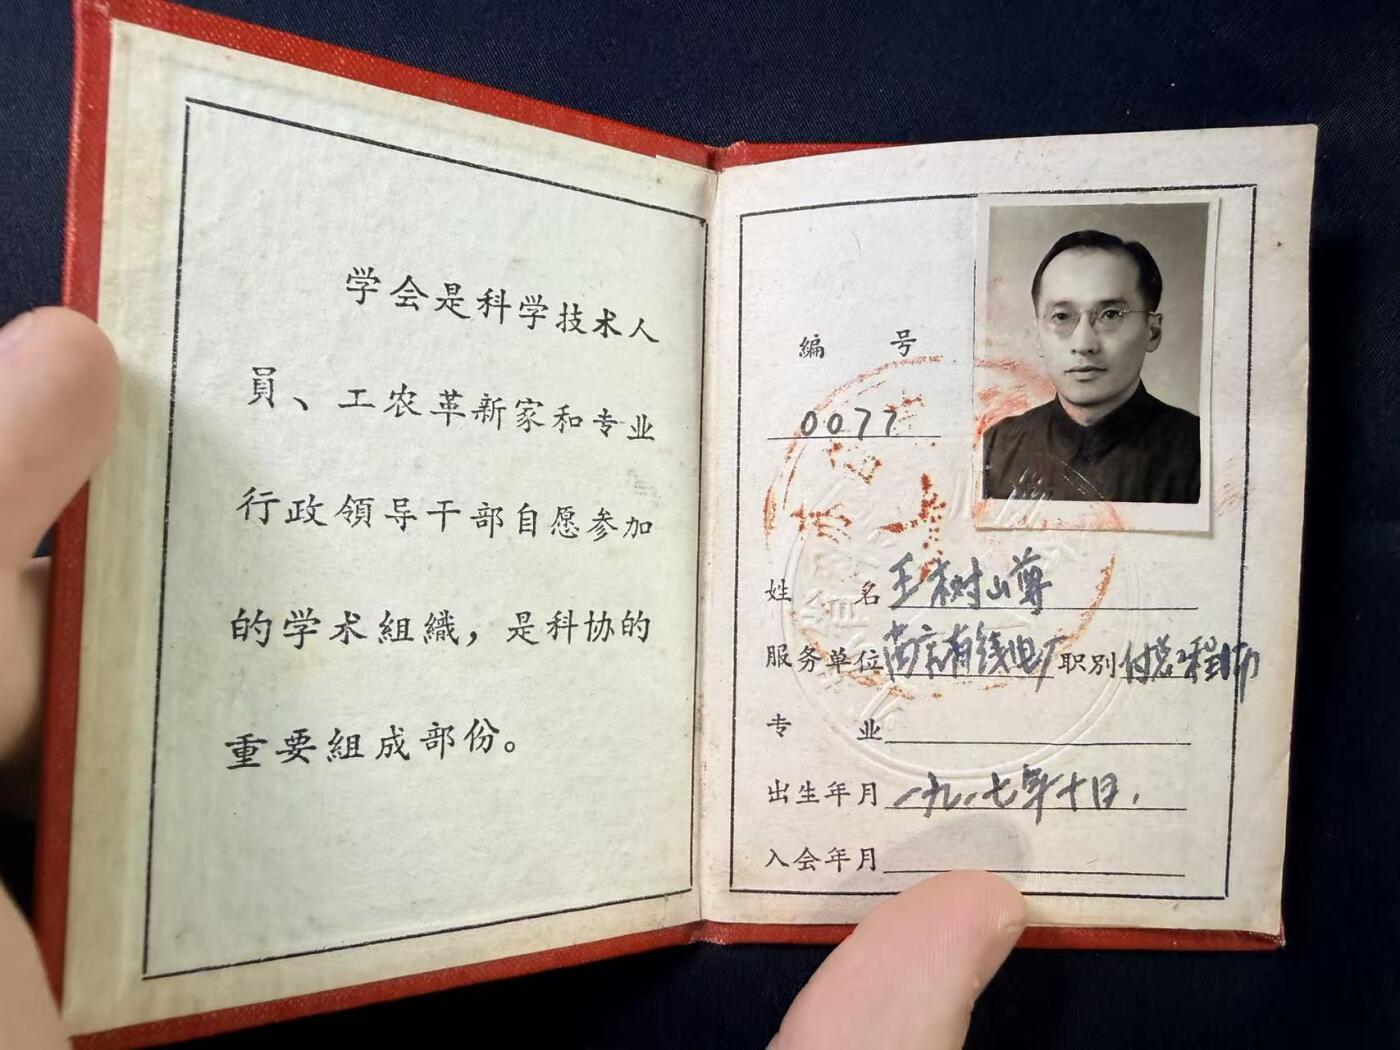 学会是科学技术人
員、工农革新家和专业
行政領导干部自愿参加
的学术組織，是科协的
重要組成部份。
編号
0077
姓名 王树山尊
服务单位 南京有线电厂 职別 付总工程师
专业
出生年月 一九一七年十月.
入会年月